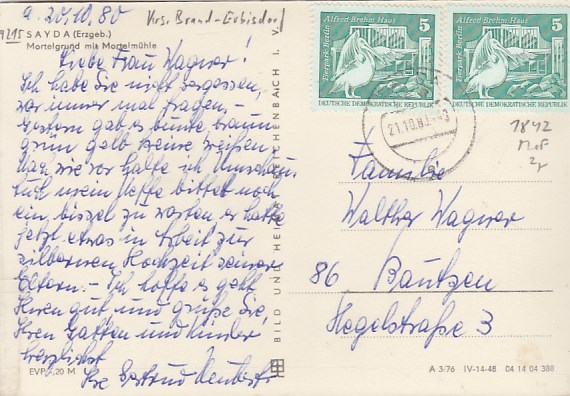 a. 20.10.80
Krs. Brand-Erbisdorf
9295 SAYDA (Erzgeb.)
Mortelgrund mit Mortelmühle
Liebe Frau Wagner!
Ich habe Sie nicht vergessen,
war immer mal fragen. -
Gestern gab es bunte braun
grün gelb keine weißen.
Nach wie vor halte ich Umschau.
Auch mein Neffe bittet noch
ein bissel zu warten er hatte
jetzt etwas in Arbeit zur
silbernen Hochzeit seiner
Eltern. - Ich hoffe es geht
Ihnen gut und grüße Sie,
Ihren Gatten und Kinder
herzlichst
Ihre Gertrud
EVP 0,20 M
BILD UND HEIMAT REICHENBACH I. V.
Alfred-Brehm-Haus 5
Tierpark Berlin
DEUTSCHE DEMOKRATISCHE REPUBLIK
Alfred-Brehm-Haus 5
Tierpark Berlin
DEUTSCHE DEMOKRATISCHE REPUBLIK
21.10.8
1842
Familie
Walther Wagner
86 Bautzen
Hegelstraße 3
A 3/76 IV-14-48 04 14 04 388